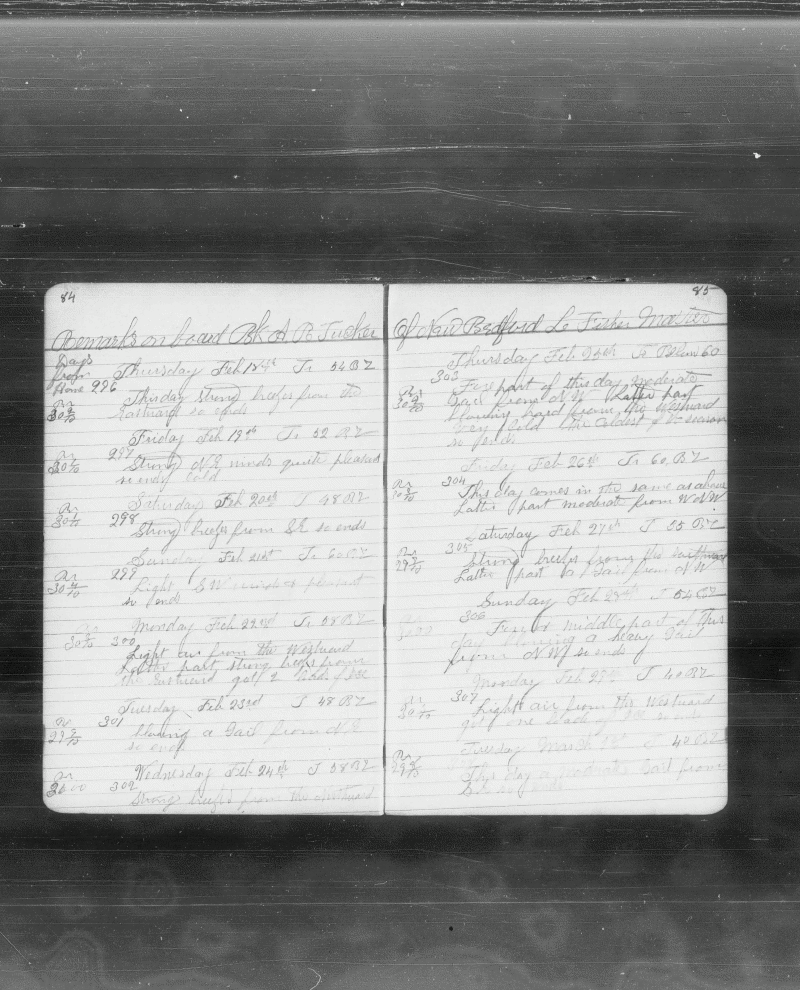 84
Remarks on board Bk A R Tucker
Days
from
Home 296
Thursday Feb 18th Tr 54 BZ
Thisday strong breefes from the
Eastward so ends
Br
30 2/10
Friday Feb 19th Tr 52 BZ
297
Strong N.E. winds quite pleasant
so ends cold
Br
30 6/10
Saturday Feb 20th T 48 BZ
Br
30 1/10
298
Strong breefes from S.E. so ends
Sunday Feb 21st Tr 60 BZ
Br
299
Light S W winds & pleasant
so ends
Monday Feb 22nd Tr 58 BZ
300
Light air from the Westward
Latter part strong breefs from
the Eastward got 2
Tuesday Feb 23rd T 48 BZ
Br
301
Blowing a Gail from N.E.
so ends
Wednesday Feb 24th T 58 BZ
Br
30 00
302
Strong breefes from the Westward
85
Of New Bedford Master
Thursday Feb 25th Tr Below 60
303
part of this day moderate
Gail from N.W. Latter part
Blowing hard from the Westward
Very Cold the Coldest of the season
so ends
Friday Feb 26th Tr 60 BZ
Br
304
This day comes in the same as above
Latter part moderate from W.N.W.
Saturday Feb 27th T 55 BZ
Br
305
Strong breefes from the Eastward
Latter part a Gail from N.W.
Sunday Feb 28th T 54 BZ
306
& middle part of this
day blowing a heavy Gail
from N.W. so ends
Monday Feb T 40 BZ
307
Light air from the Westward
got one of so ends
Tuesday March T 40 BZ
Br
This day a moderate Gail from
S.E. so ends